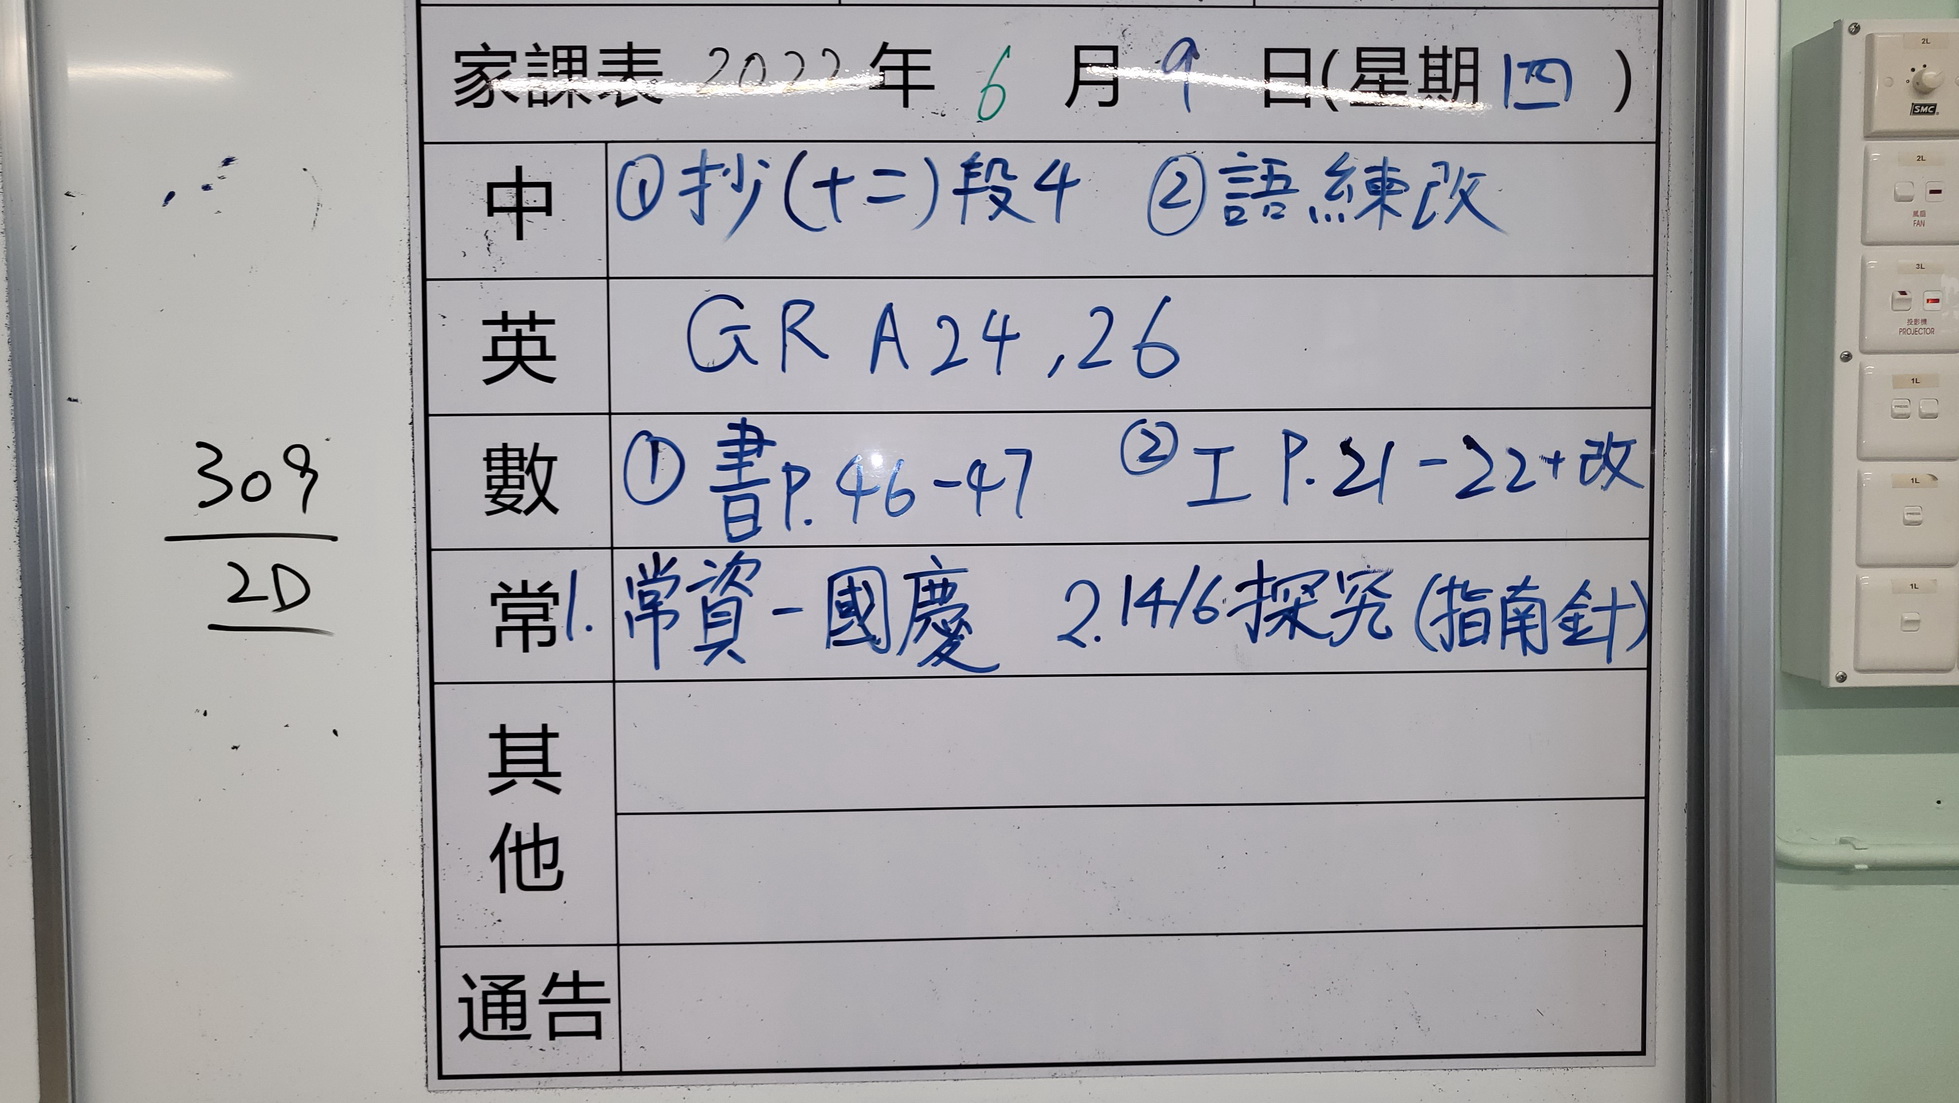 家課表 2022 年 6 月 9 日(星期四)
中 ①抄(十二)段4 ②語練改
英 GR A24,26
數 ①書P.46-47 ②工 P.21-22+改
常 1. 常資-國慶 2. 14/6探究(指南針)
其他
通告
309
2D
2L
SMC
2L
風扇
FAN
3L
投影機
PROJECTOR
1L
1L
1L